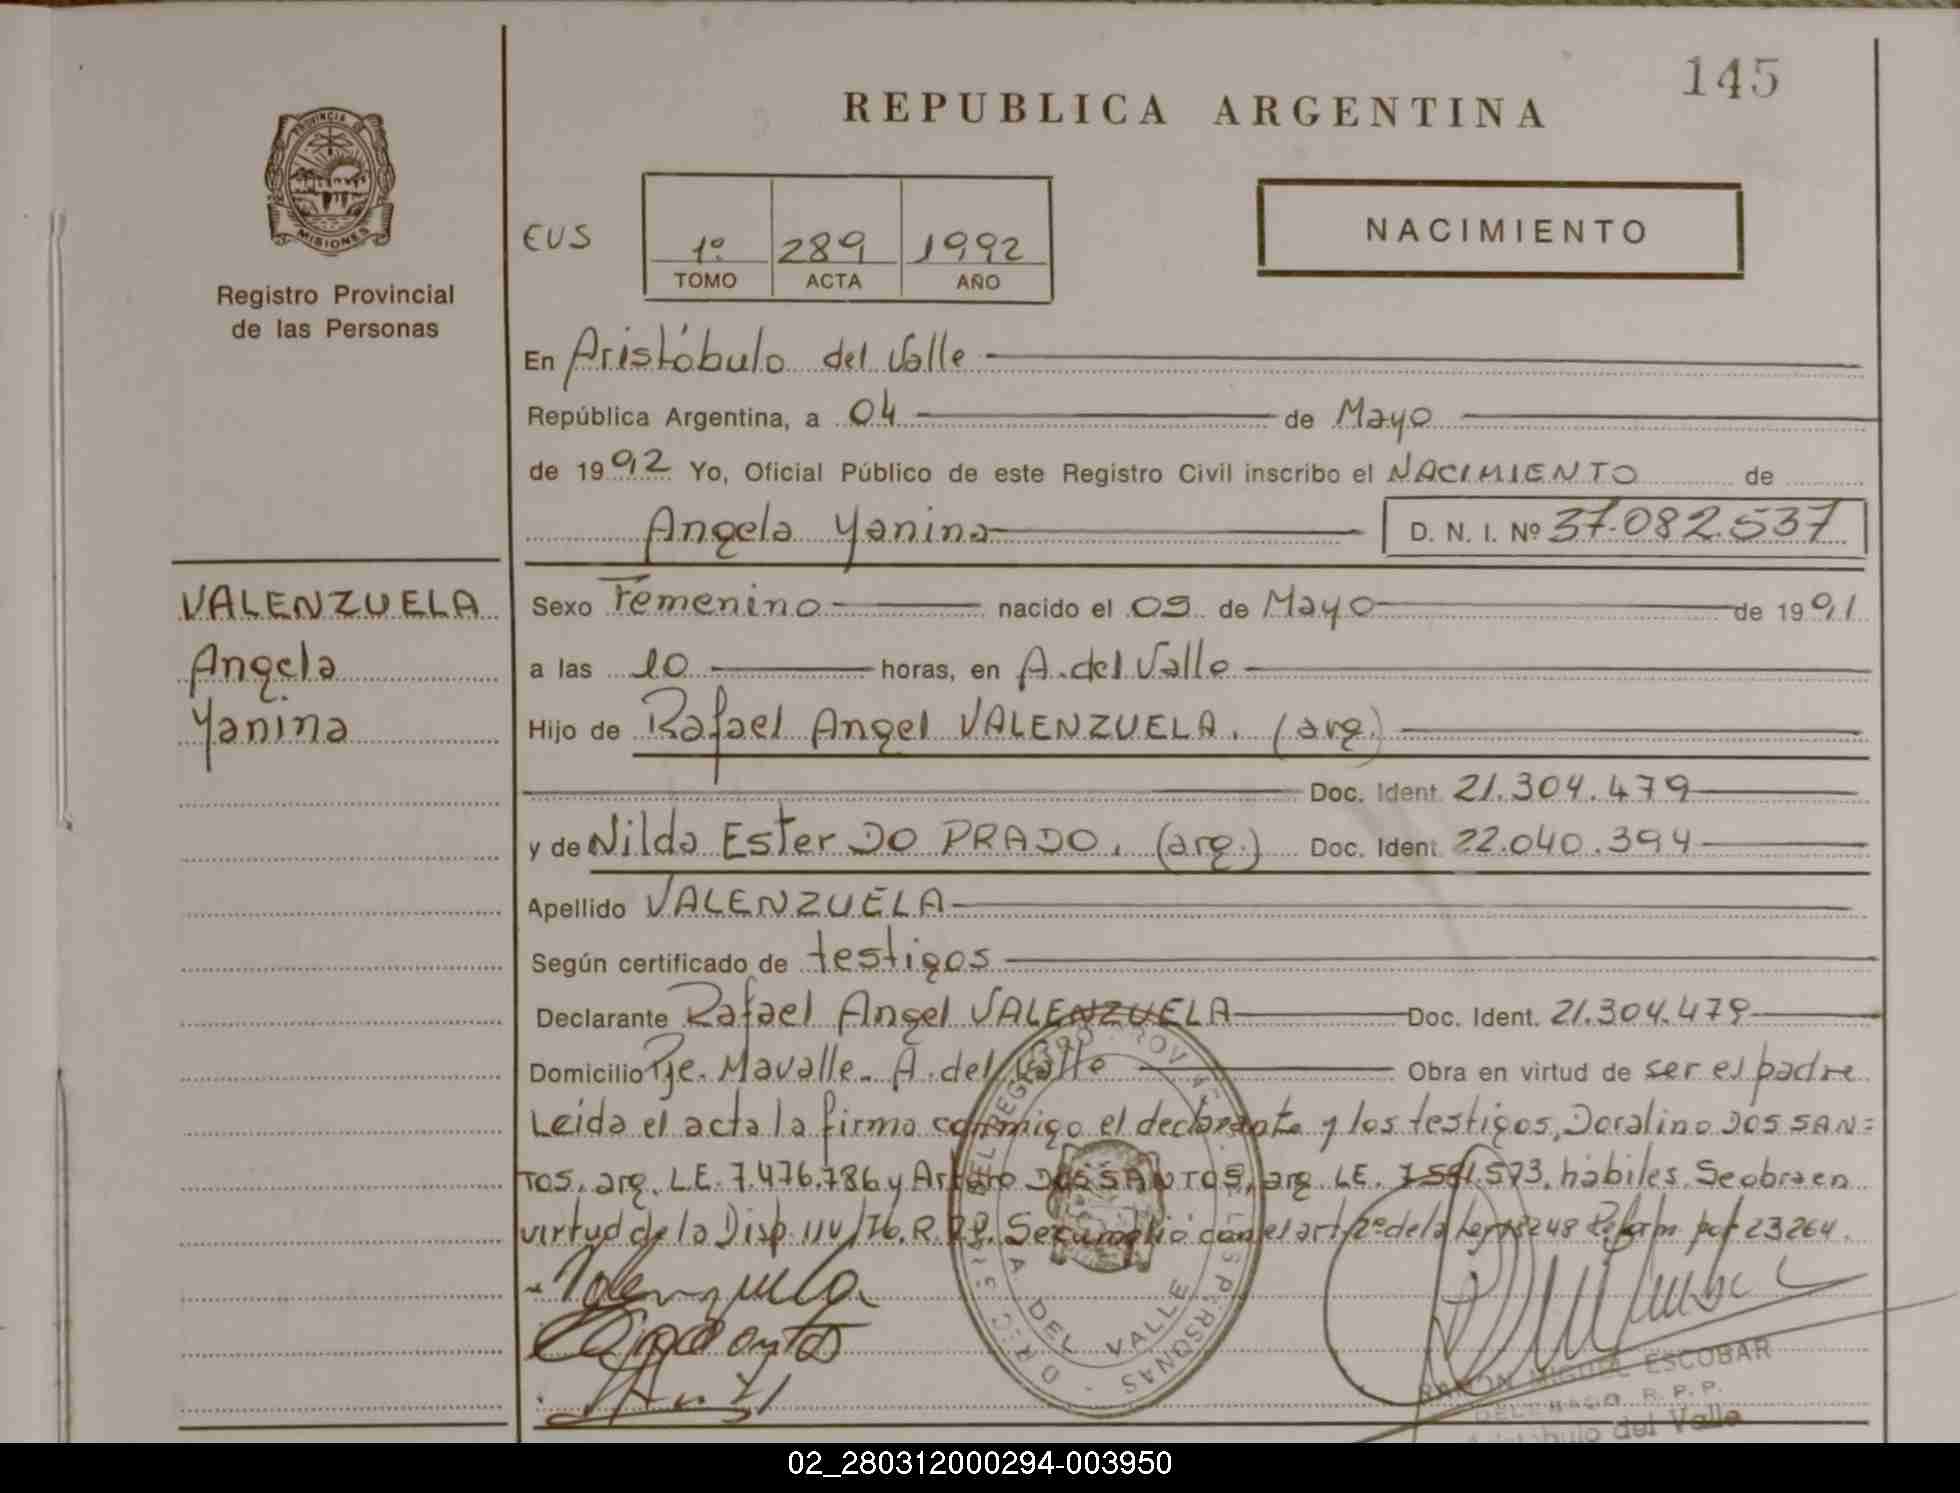 145
REPUBLICA ARGENTINA
PROVINCIA DE
MISIONES
Registro Provincial
de las Personas
EUS
1º 289 1992
TOMO ACTA AÑO
NACIMIENTO
En Aristóbulo del Valle
República Argentina, a 04 de Mayo
de 1992 Yo, Oficial Público de este Registro Civil inscribo el NACIMIENTO de
Angela Yanina D. N. I. Nº 37.082.537
VALENZUELA
Angela
Yanina
Sexo Femenino nacido el 09 de Mayo de 1991
a las 10 horas, en A. del Valle
Hijo de Rafael Angel VALENZUELA. (arg.)
Doc. Ident. 21.304.479
y de Nilda Ester DO PRADO. (arg.) Doc. Ident. 22.040.394
Apellido VALENZUELA
Según certificado de testigos
Declarante Rafael Angel VALENZUELA Doc. Ident. 21.304.479
Domicilio Pje. Mavalle. A. del Valle Obra en virtud de ser el padre
Leida el acta la firma conmigo el declarante y los testigos, Doralino DOS SAN=
TOS. arg. L.E. 7.476.786 y Arturo DOS SANTOS, arg. L.E. 573, hábiles. Se obra en
virtud de la Disp. R. Se cumplió con el art. 2º de la Ley 18248 Reform por 23264.
Valenzuela
DEL VALLE
RAMON MIGUEL ESCOBAR
DELEGADO R. P. P.
Aristóbulo del Valle
02_280312000294-003950